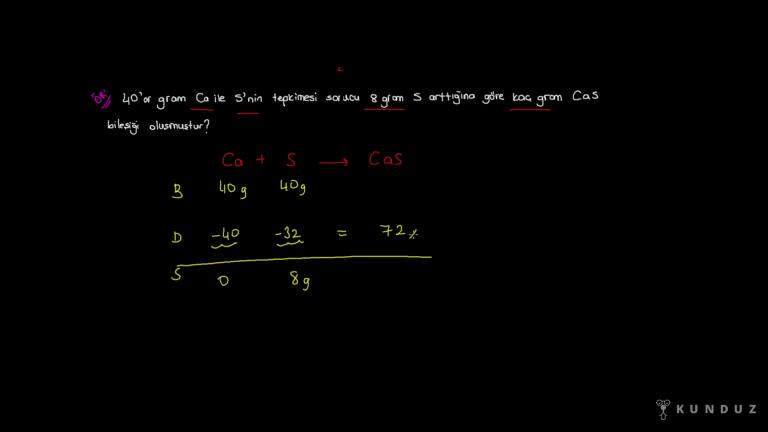 ÖR// 40'ar gram Ca ile S'nin tepkimesi sonucu 8 gram S arttığına göre kaç gram CaS
bileşiği oluşmuştur?
Ca + S → CaS
B 40g 40g
D -40 -32 = 72
S 0 8g
KUNDUZ